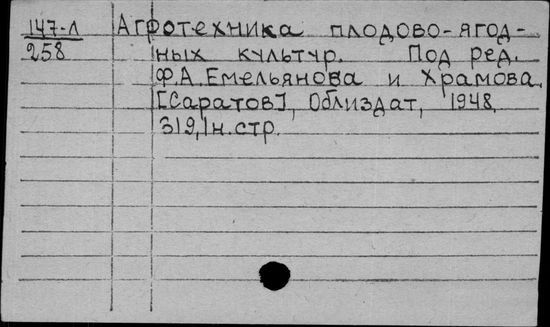 147-Л Агротехника плодово-ягод-
258 ных культур. Под ред.
Ф.А.Емельянова и Храмова.
[Саратов], Облиздат, 1948.
319, 1н.стр.